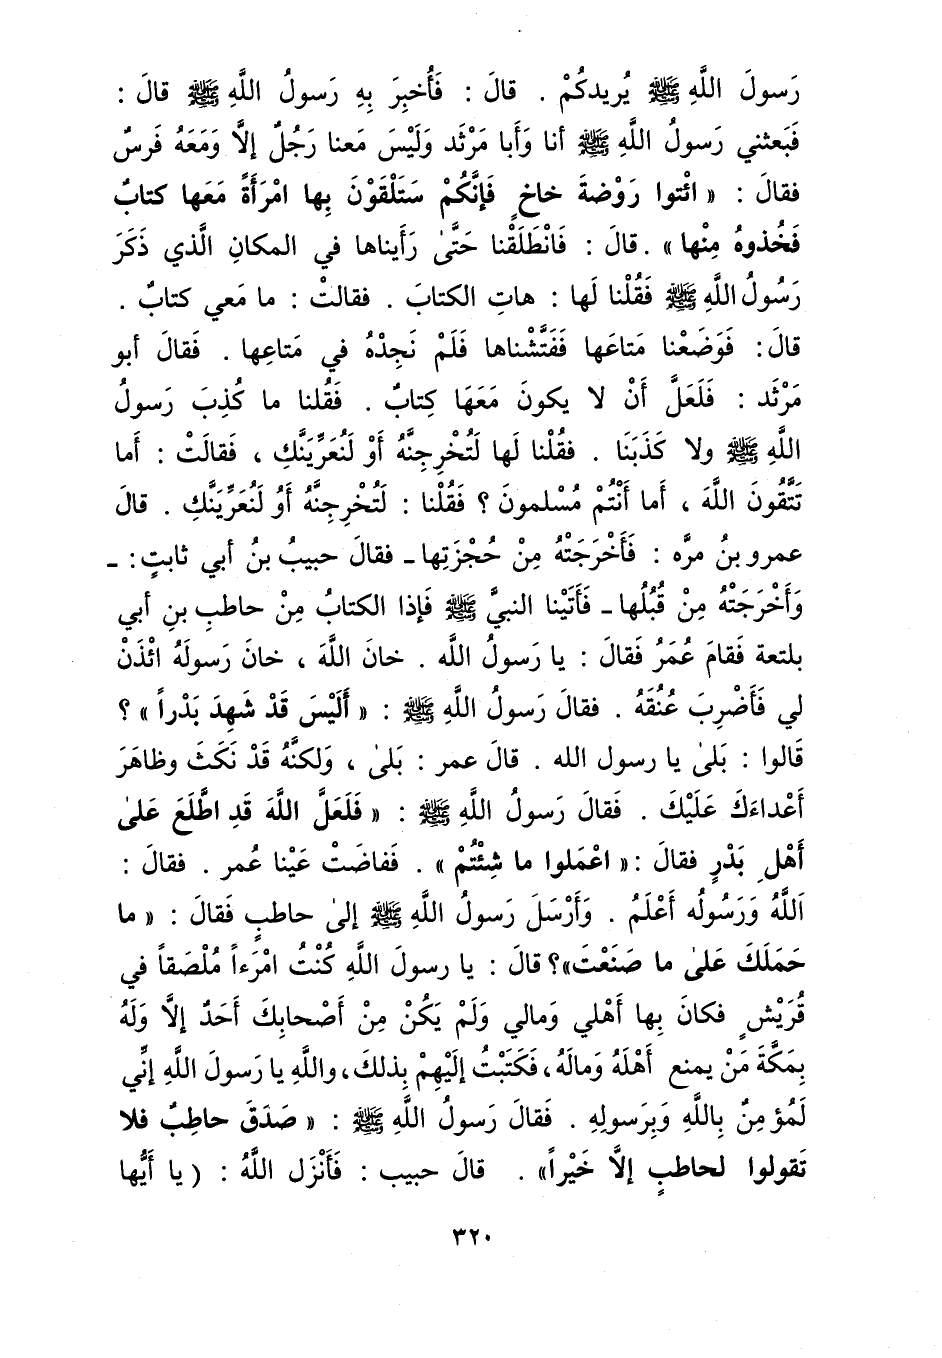 رَسولَ اللَّهِ ﷺ يُريدكُمْ . قالَ : فَأُخبِرَ بِهِ رَسولُ اللَّهِ ﷺ قالَ :
فَبَعثني رَسولُ اللَّهِ ﷺ أنا وَأَبا مَرْثَد وَلَيْسَ مَعنا رَجُلٌ إلَّا وَمَعَهُ فَرسٌ
فقالَ : « ائْتوا رَوْضةَ خاخٍ فَإنَّكُمْ سَتَلْقَوْنَ بِها امْرَأَةً مَعَها كتابٌ
فَخُذوهُ مِنْها » . قالَ : فَانْطَلَقْنا حَتَّىٰ رَأَيناها في المكانِ الَّذي ذَكَرَ
رَسُولُ اللَّهِ ﷺ فَقُلْنا لَها : هاتِ الكتابَ . فقالتْ : ما مَعي كتابٌ .
قالَ : فَوَضَعْنا مَتاعَها فَفَتَّشْناها فَلَمْ نَجِدْهُ في مَتاعِها . فَقالَ أبو
مَرْثَد : فَلَعَلَّ أَنْ لا يكونَ مَعَهَا كِتابٌ . فَقُلنا ما كُذِبَ رَسولُ
اللَّهِ ﷺ ولا كَذَبَنَا . فقُلْنا لَها لَتُخْرِجِنَّهُ أَوْ لَنُعَرِّيَنَّكِ ، فَقالَتْ : أَما
تَتَّقُونَ اللَّهَ ، أَما أَنْتُمْ مُسْلمونَ ؟ فَقُلْنا : لَتُخْرِجِنَّهُ أَوْ لَنُعَرِّيَنَّكِ . قالَ
عمرو بنُ مرَّه : فَأَخْرَجَتْهُ مِنْ حُجْزَتِها ـ فقالَ حبيبُ بنُ أبي ثابتٍ : ـ
وَأَخْرَجَتْهُ مِنْ قُبُلُها ـ فَأَتَيْنا النبيَّ ﷺ فَإذا الكتابُ مِنْ حاطبِ بنِ أبي
بلتعة فَقامَ عُمَرُ فَقالَ : يا رَسولُ اللَّه . خانَ اللَّهَ ، خانَ رَسولَهُ ائْذَنْ
لي فَأَضْرِبَ عُنُقَهُ . فقالَ رَسولُ اللَّهِ ﷺ : « أَلَيْسَ قَدْ شَهِدَ بَدْراً » ؟
قَالوا : بَلىٰ يا رسول الله . قالَ عمر : بَلىٰ ، وَلكنَّهُ قَدْ نَكَثَ وظاهَرَ
أَعْداءَكَ عَلَيْكَ . فَقالَ رَسولُ اللَّهِ ﷺ : « فَلَعَلَّ اللَّهَ قَدِ اطَّلَعَ عَلىٰ
أَهْلِ بَدْرٍ فقالَ : « اعْمَلوا ما شِئْتُمْ » . فَفاضَتْ عَيْنا عُمر . فقالَ :
اَللَّهُ وَرَسُولُه أَعْلَمُ . وَأَرْسَلَ رَسولُ اللَّهِ ﷺ إلىٰ حاطبٍ فَقالَ : « ما
حَمَلَكَ عَلىٰ ما صَنَعْتَ »؟ قالَ : يا رسولَ اللَّهِ كُنْتُ امْرَءاً مُلْصَقاً في
قُرَيْشٍ فكانَ بِها أَهْلي وَمالي وَلَمْ يَكُنْ مِنْ أَصْحابِكَ أَحَدٌ إلَّا وَلَهُ
بِمَكَّةَ مَنْ يمنع أَهْلَهُ وَمالَهُ، فَكَتَبْتُ إلَيْهِمْ بِذلكَ، واللَّهِ يا رَسولَ اللَّهِ إنِّي
لَمُؤمِنٌ بِاللَّهِ وَبِرَسولِهِ . فَقالَ رَسولُ اللَّهِ ﷺ : « صَدَقَ حاطِبٌ فلا
تَقولوا لحاطبٍ إلَّا خَيْراً» . قالَ حبيب : فَأَنْزَل اللَّهُ : ( يا أَيُّها
٣٢٠